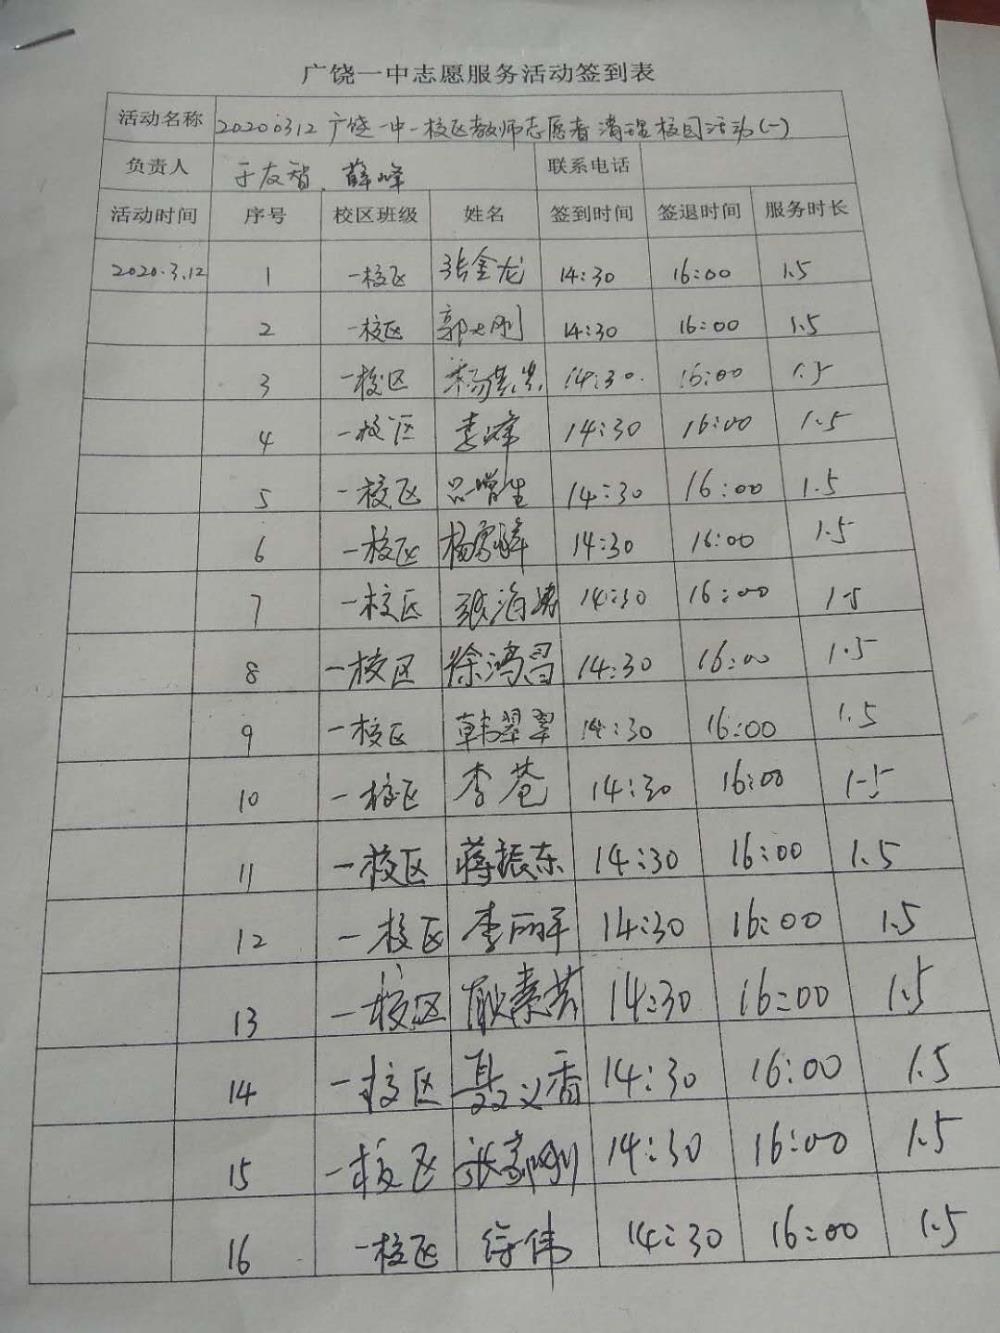 广饶一中志愿服务活动签到表
活动名称 20200312 广饶一中一校区教师志愿者清理校园活动(一)
负责人 于友智、薛峰 联系电话
活动时间 序号 校区班级 姓名 签到时间 签退时间 服务时长
2020.3.12 1 一校区 张金龙 14:30 16:00 1.5
2 一校区 14:30 16:00 1.5
3 一校区 14:30. 16:00 1.5
4 一校区 李峰 14:30 16:00 1.5
5 一校区 吕增生 14:30 16:00 1.5
6 一校区 14:30 16:00 1.5
7 一校区 张海涛 14:30 16:00 1.5
8 一校区 徐鸿昌 14:30 16:00 1.5
9 一校区 韩翠翠 14:30 16:00 1.5
10 一校区 李苍 14:30 16:00 1.5
11 一校区 蒋振东 14:30 16:00 1.5
12 一校区 李丽平 14:30 16:00 1.5
13 一校区 耿素芳 14:30 16:00 1.5
14 一校区 聂义香 14:30 16:00 1.5
15 一校区 14:30 16:00 1.5
16 一校区 徐伟 14:30 16:00 1.5